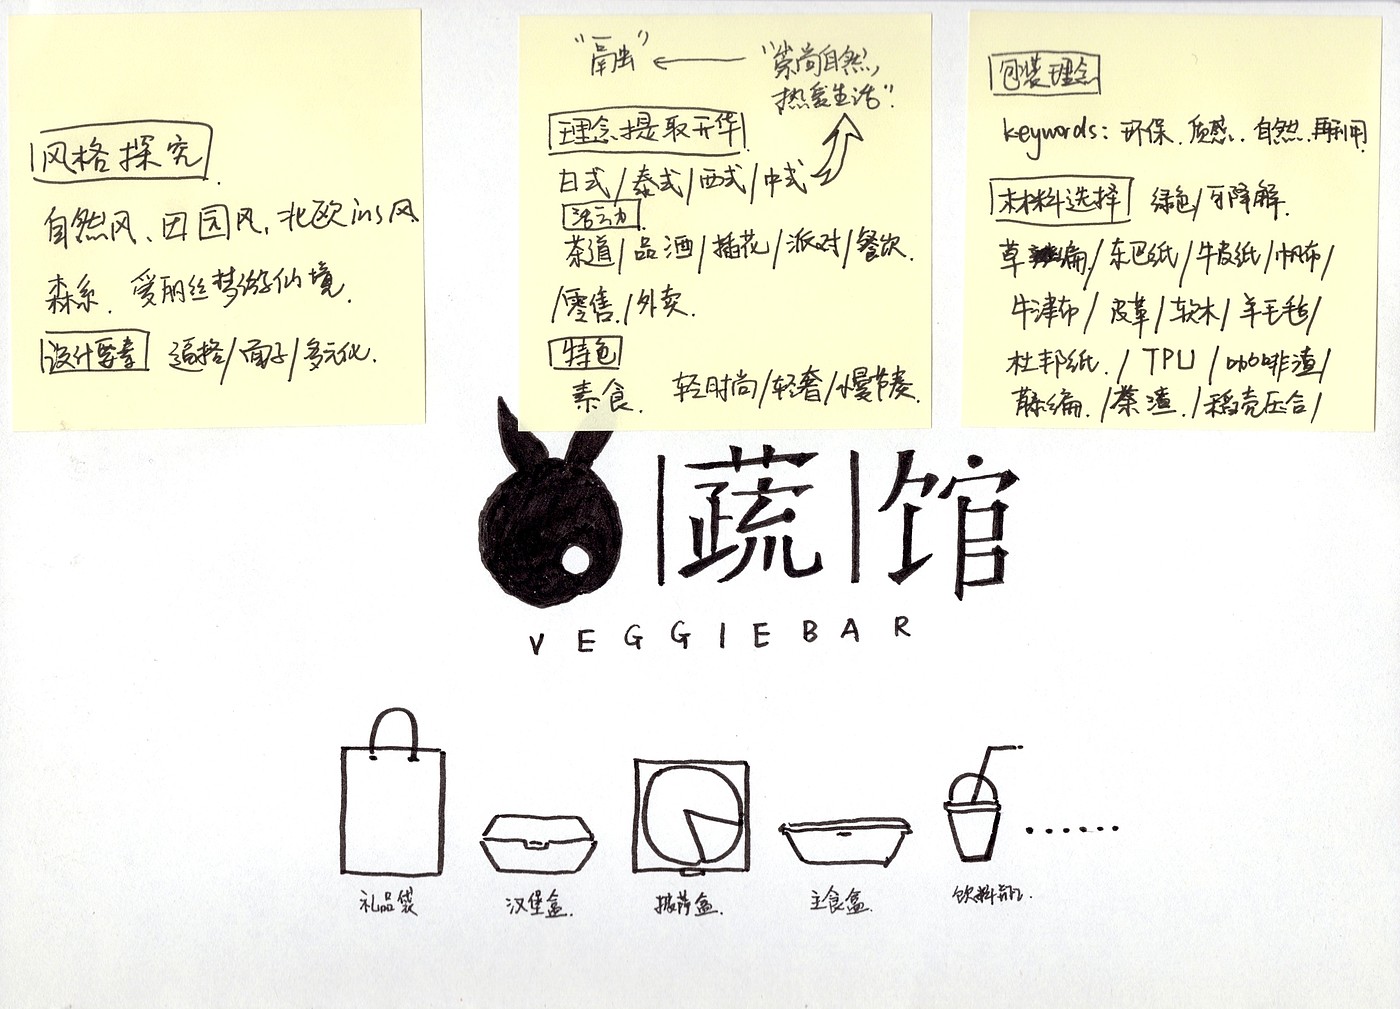 风格探究
自然风、田园风、北欧ins风
森系、爱丽丝梦游仙境
设计要素 逼格/面子/多元化.
“融” ← “崇尚自然,
热爱生活”.
理念提取升华
日式/泰式/西式/中式
活动
茶道/品酒/插花/派对/餐饮
/零售./外卖.
特色
素食. 轻时尚/轻奢/慢节奏.
包装理念
keywords: 环保.质感.自然.再利用
材料选择 绿色/可降解.
草编/东巴纸/牛皮纸/帆布/
牛津布/皮革/软木/羊毛毡/
杜邦纸./TPU/咖啡渣/
藤编./茶渣./稻壳压合/
蔬馆
VEGGIEBAR
礼品袋 汉堡盒. 披萨盒. 主食盒. 饮料瓶.